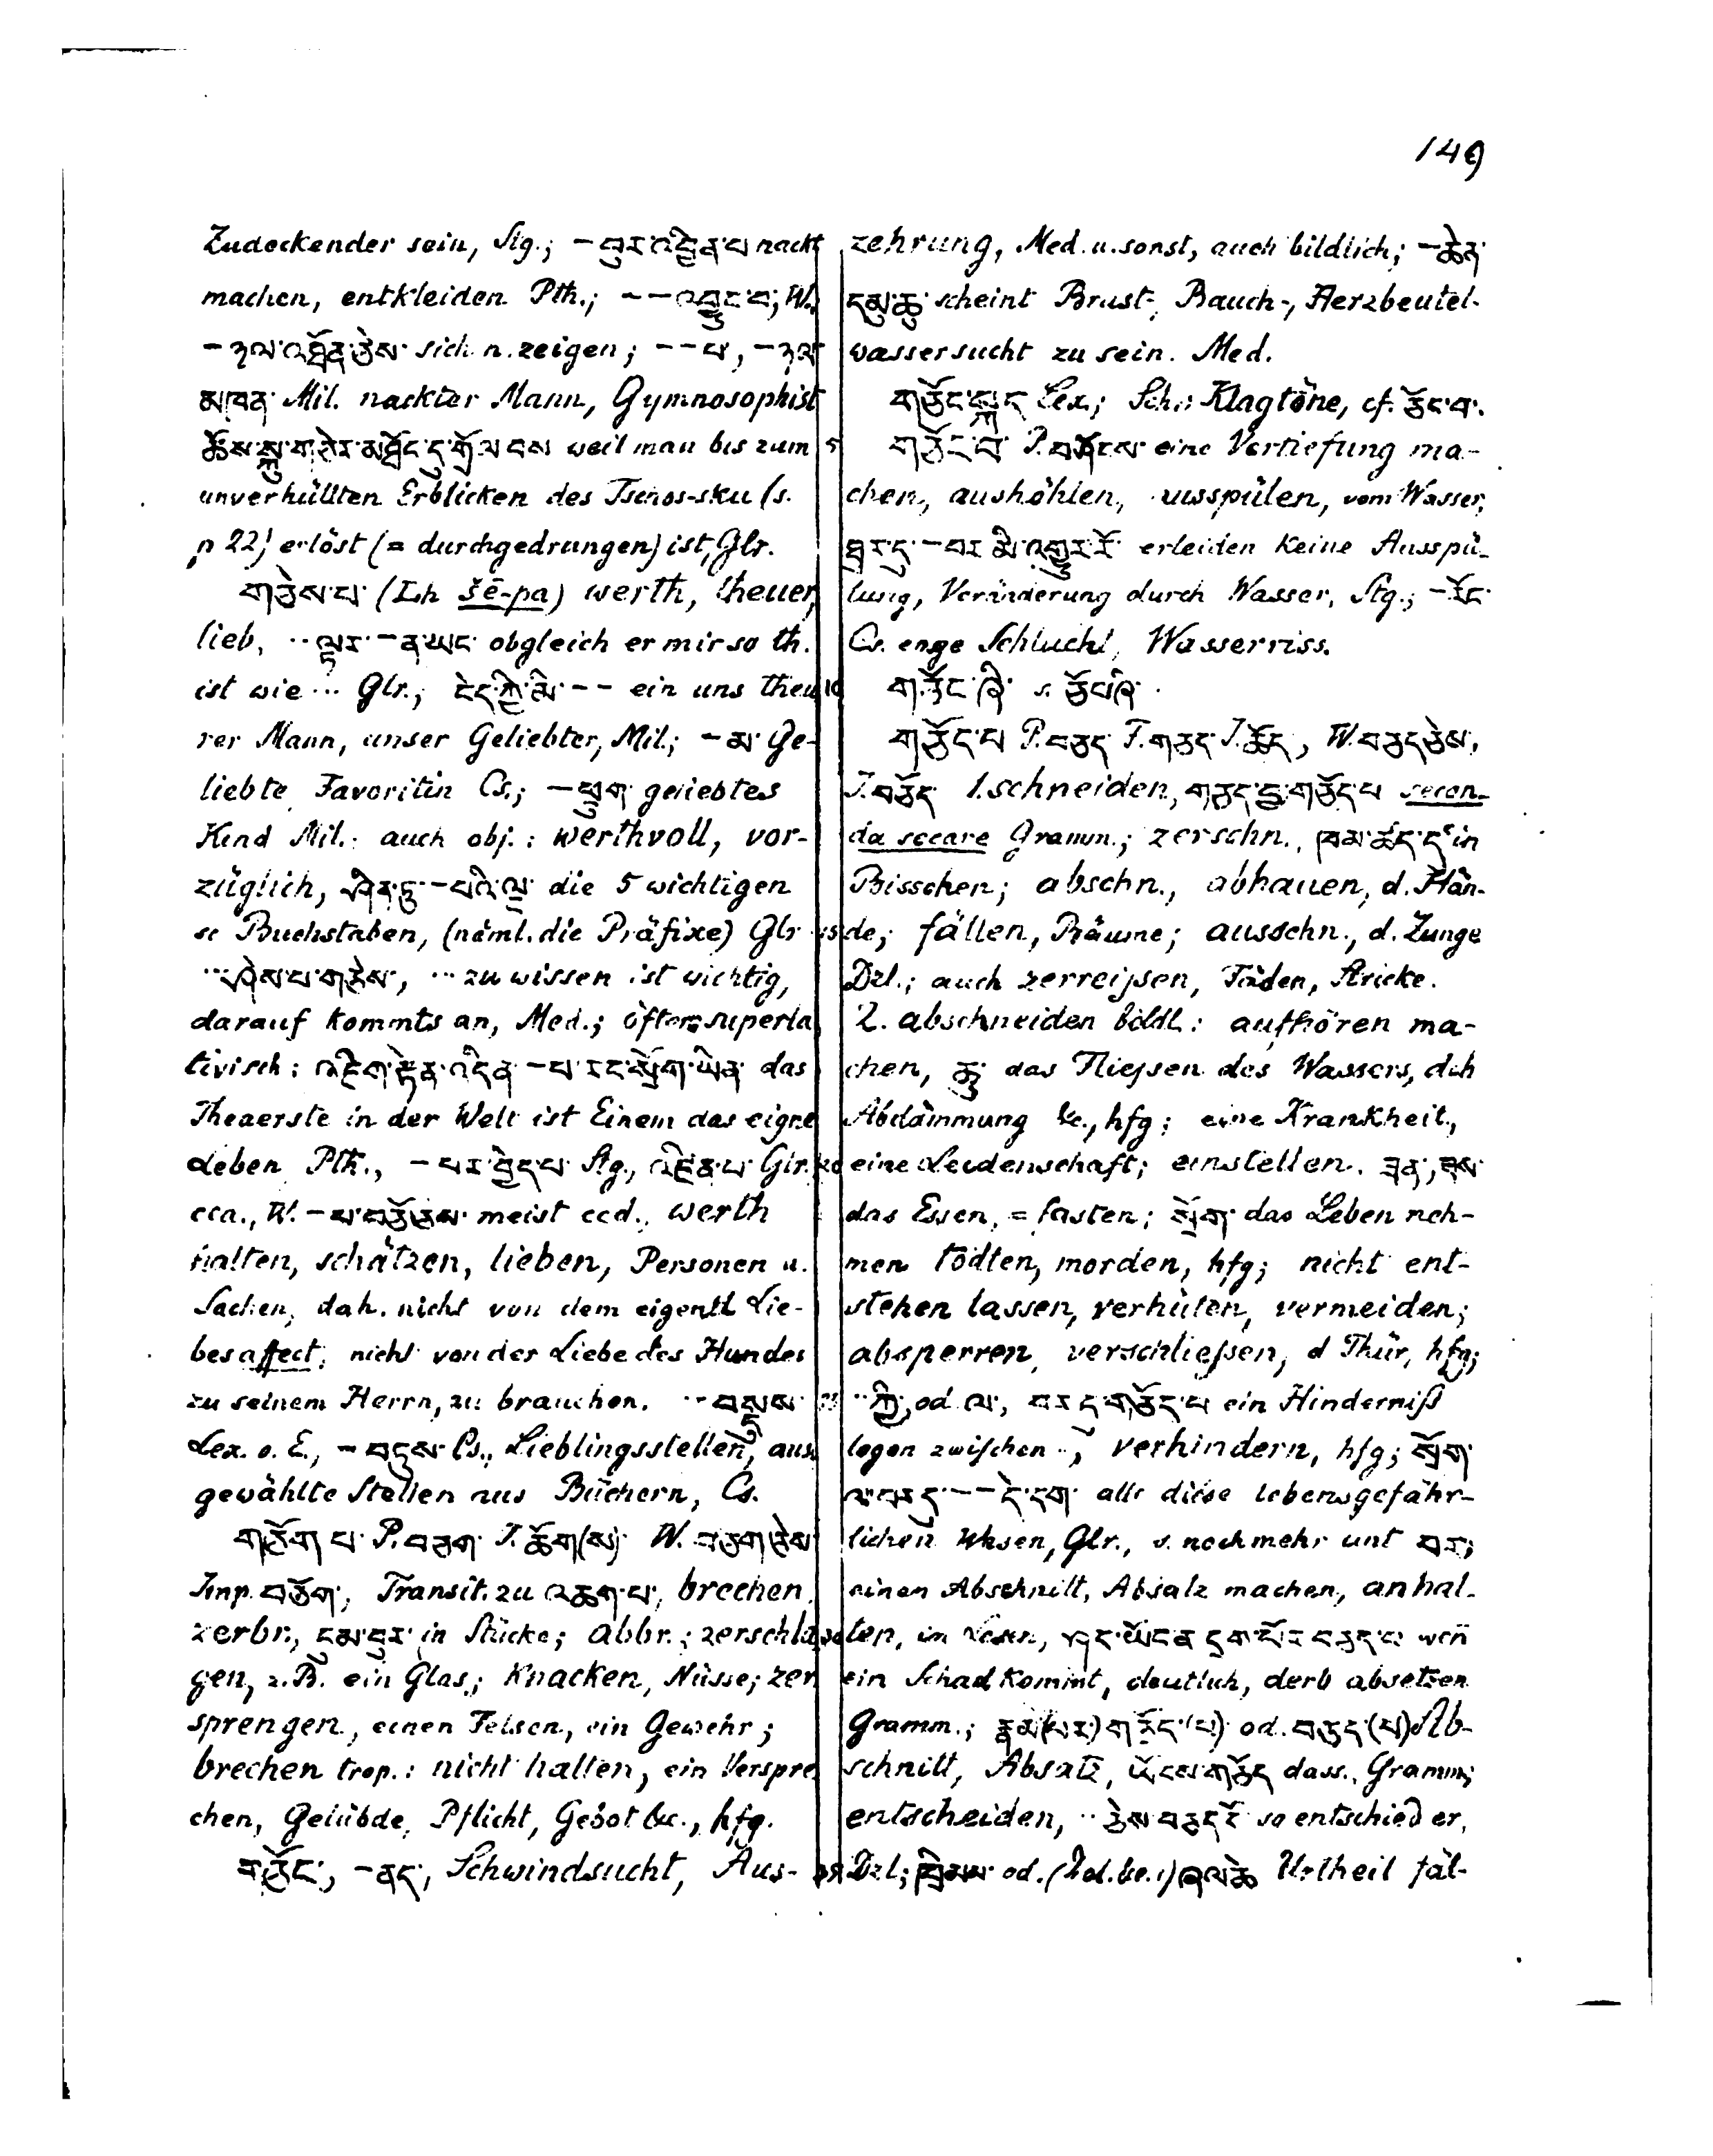 149
Zudeckender sein, Stg.; – བུར་འབྱིན་པ nackt
machen, entkleiden Pth.; – – འབྱུང་བ, W.
– ལ་འཐོན་ཅེས་ sich n. zeigen; – – པ, –
མཁན་ Mil. nackter Mann, Gymnosophist
ཆོས་སྐུ་གཅེར་མཐོང་དུ་གྲོལ་བས weil man bis zum
unverhüllten Erblicken des Tschos-sku (s.
p 22) erlöst (= durchgedrungen) ist, Glr.
གཅེས་པ་ (Lh šē-pa) werth, theuer,
lieb, ·· ལྟར་ – ན་ཡང་ obgleich er mir so th.
ist wie ··· Glr., ངེད་ཀྱི་མི་ – – ein uns theu
rer Mann, unser Geliebter, Mil.; – མ་ Ge-
liebte Favoritin Cs.; – ཕྲུག་ geliebtes
Kind Mil.: auch obj.: werthvoll, vor-
züglich, ཤིན་ཏུ་ – པའི་ལྔ་ die 5 wichtigen
sc Buchstaben, (näml. die Präfixe) Glr
··· ཤེས་པ་གཅེས་, ··· zu wissen ist wichtig,
darauf kommts an, Med.; öfters superla
tivisch: འཇིག་རྟེན་འདིན་ – པ་རང་སྲོག་ཡིན་ das
Theuerste in der Welt ist Einem das eigne
Leben Pth., – པར་བྱེད་པ་ Stg., འཛིན་པ་ Glr.
cca., W. – པ་བཅོས་ meist ccd., werth
halten, schätzen, lieben, Personen u.
Sachen, dah. nicht von dem eigentl Lie-
besaffect; nicht von der Liebe des Hundes
zu seinem Herrn, zu brauchen. ·· – བསྡུས་
Lex. o. E., – བཏུས་ Cs., Lieblingsstellen, aus
gewählte Stellen aus Büchern, Cs.
གཅོག་པ་ P. བཅག་ I. ཆོག(ས)་ W. བཅག་ཅེས་
Imp. བཅོག་, Transit. zu འཆག་པ་, brechen,
zerbr., དུམ་བུར་ in Stücke; abbr.; zerschla
gen, z. B. ein Glas; knacken, Nüsse; zer
sprengen, einen Felsen, ein Gewehr;
brechen trop.: nicht halten, ein Verspre
chen, Gelübde, Pflicht, Gebot &c., hfg.
གཅོང་, – ནད་, Schwindsucht, Aus-
zehrung, Med. u. sonst, auch bildlich; – ཆེན་
དམུ་ཆུ་ scheint Brust-, Bauch-, Herzbeutel-
wassersucht zu sein. Med.
གཅོང་སྐད Lex; Sch.: Klagtöne, cf. ཅོང་བ་.
གཅོང་བ་ P. བཅོངས་ eine Vertiefung ma-
chen, aushöhlen, usspülen, vom Wasser,
ཐུར་དུ་ – བར་མི་འགྱུར་རོ་ erleiden keine Ausspü-
lung, Veränderung durch Wasser, Stg.; – རོང་
Cs. enge Schlucht, Wasserriss.
གཅོང་ཞི་ s. ཅོང་ཞི་.
གཅོད་པ P. བཅད F. གཅད I. ཆོད, W. བཅད་ཅེས,
I. བཅོད 1. schneiden, གཅད་བྱ་གཅོད་པ secan-
da secare Gramm.; zerschn., ཁམ་ཚད་དུ in
Bisschen; abschn., abhauen, d. Hän-
de; fällen, Bäume; ausschn., d. Zunge
Dzl.; auch zerreißen, Fäden, Stricke.
2. abschneiden bildl.: aufhören ma-
chen, ཆུ་ das Fließen des Wassers, dch
Abdämmung &c., hfg; eine Krankheit,
eine Leidenschaft; einstellen. ཟན་, ཟས་
das Essen, = fasten; སྲོག་ das Leben neh-
men tödten, morden, hfg; nicht ent-
stehen lassen, verhüten, vermeiden;
absperren, verschließen, d Thür, hfg;
·· ཀྱི་, od. ལ་, བར་དུ་གཅོད་པ ein Hinderniß
legen zwischen ··, verhindern, hfg; སྲོག་
ལ་བརད་ – – དེ་དག་ alle diese lebensgefähr-
lichen Wesen, Glr., s. noch mehr unt བར;
einen Abschnitt, Absatz machen, anhal-
ten, im Lesen, ཤད་ཡོང་ན་དྲག་པོར་བཅད་པ weñ
ein Schad kommt, deutlich, derb absetzen
Gramm.; རྣམ(པར)གཅོད་(པ)་ od. བཅད་(པ) Ab-
schnitt, Absatz, ཡོངས་གཅོད dass., Gramm;
entscheiden, ·· ཅེས་བཅད་དོ so entschied er,
Dzl; ཁྲིམས་ od. (Zd. &c.) ཞལ་ཆེ Urtheil fäl-